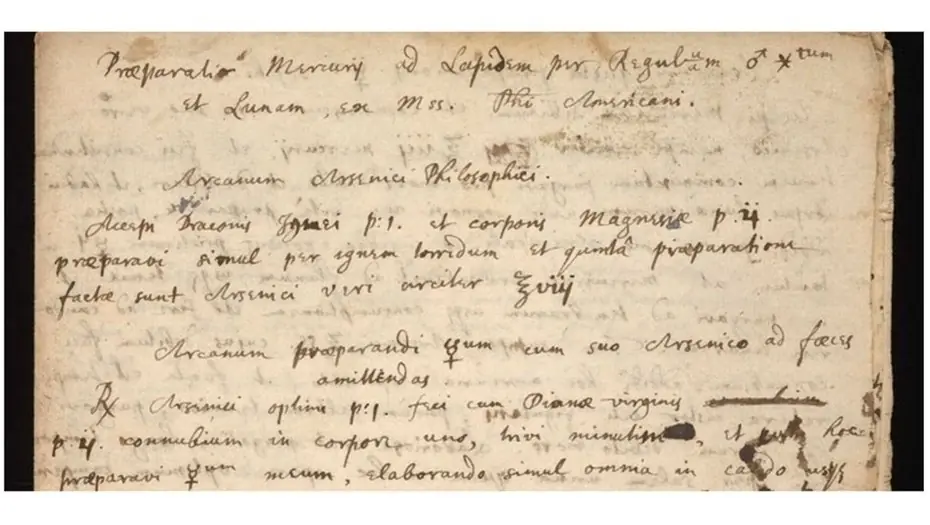 Præparatio Mercurij ad Lapidem per Regulum ♂ ⚹tum
et Lunam, ex Mss. Phi Americani.
Arcanum Arsenici Philosophici.
Accepi Draconis Ignei p: 1. et corporis Magnesiæ p. ij.
præparavi simul per ignem torridum et quintâ præparatione
factæ sunt Arsenici veri circiter ℥viij
Arcanum præparandi ☿um cum suo Arsenico ad fæces
amittendas
℞ Arsenici optimi p: 1. feci cum Dianæ virginis
p. ij. connubium in corpore uno, trivi minutim, et hoc
præparavi ☿um meum, elaborando simul omnia in